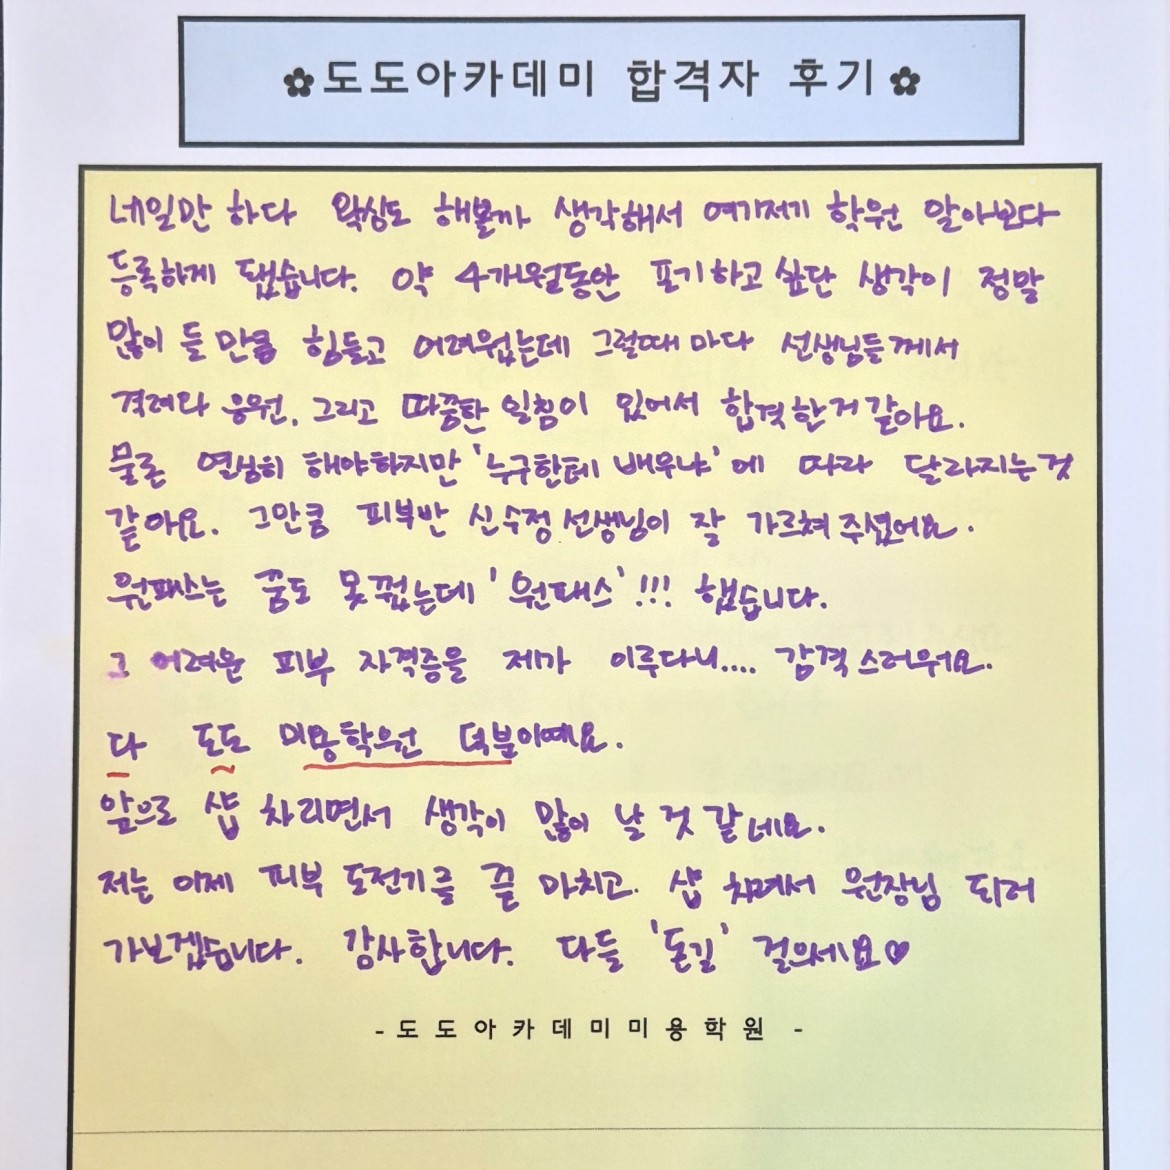 ✿도도아카데미 합격자 후기✿
네일만 하다 왁싱도 해볼까 생각해서 여기저기 학원 알아보다
등록하게 됐습니다. 약 4개월동안 포기하고 싶단 생각이 정말
많이 들 만큼 힘들고 어려웠는데 그럴때 마다 선생님들께서
격려다 응원, 그리고 따끔한 일침이 있어서 합격한거 같아요.
물론 열심히 해야하지만 '누구한테 배우냐'에 따라 달라지는것
같아요. 그만큼 피부반 신수정 선생님이 잘 가르쳐 주셨어요.
원패스는 꿈도 못꿨는데 '원패스'!!! 했습니다.
그 어려운 피부 자격증을 제가 이루다니.... 감격스러워요.
다 도도 미용학원 덕분이예요.
앞으로 샵 차리면서 생각이 많이 날 것 같네요.
저는 이제 피부 도전기를 끝 마치고. 샵 차려서 원장님 되러
가보겠습니다. 감사합니다. 다들 '돈길' 걸으세요♡
- 도도아카데미미용학원 -